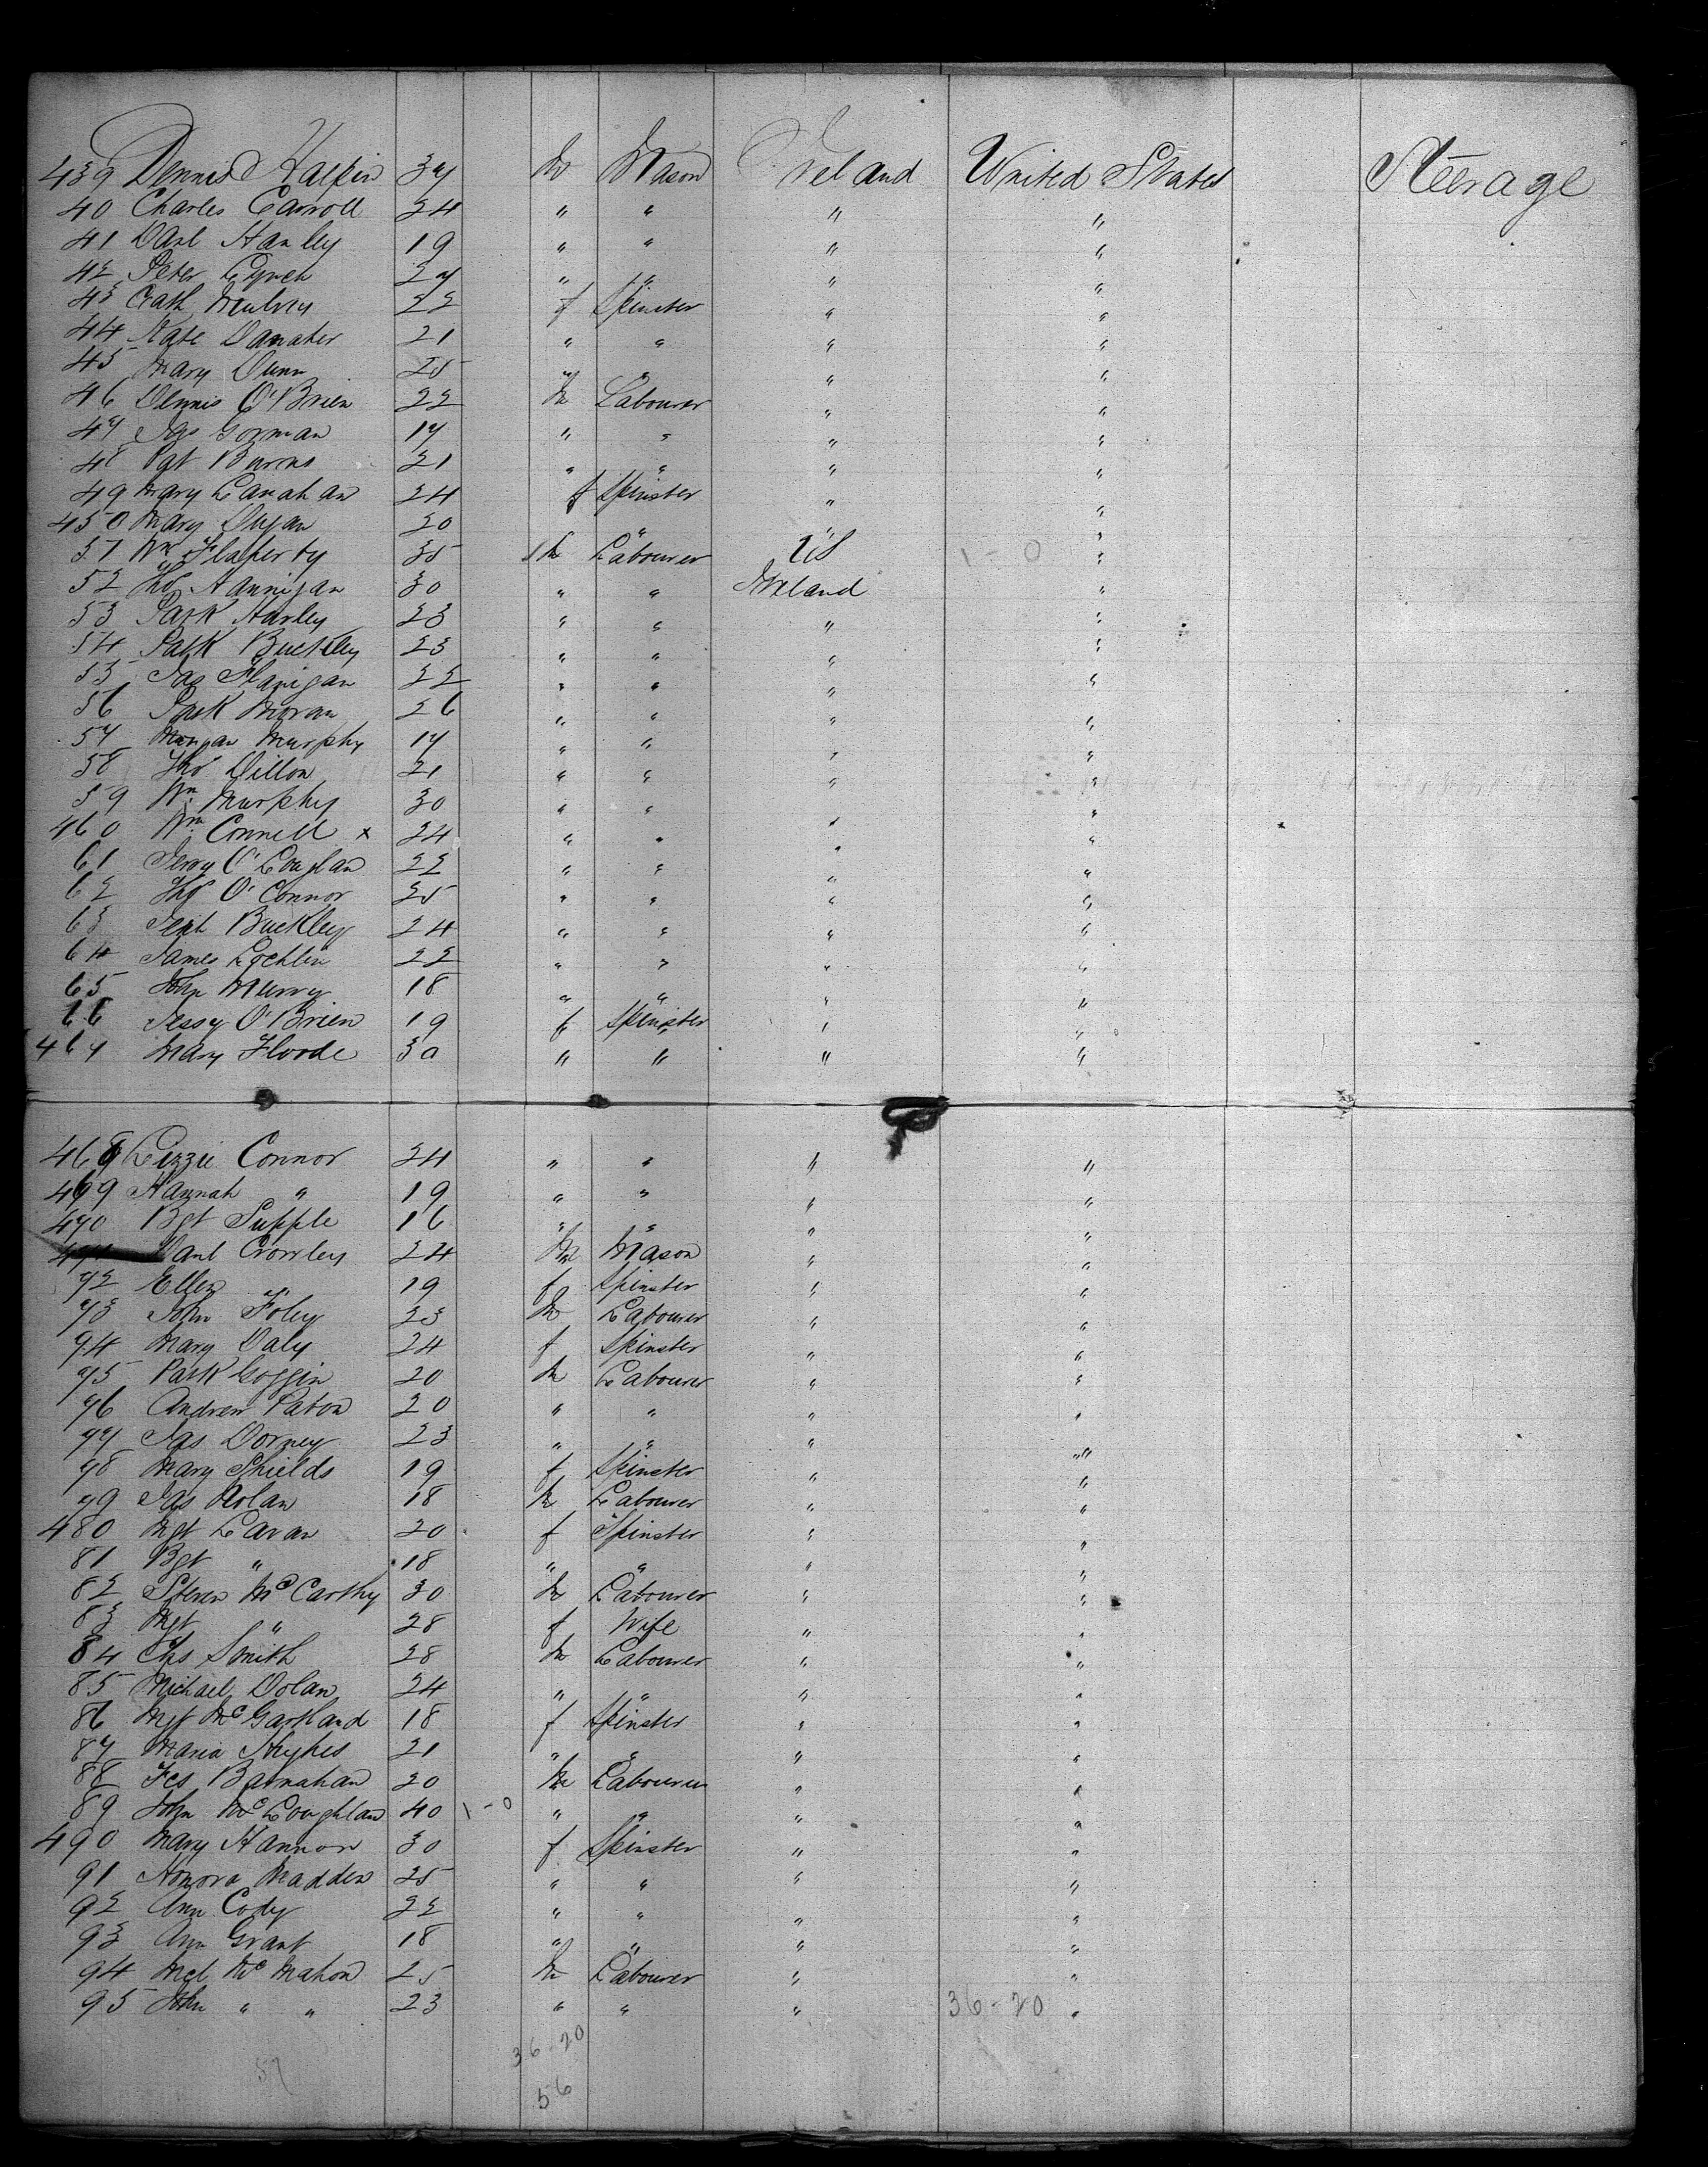 439 Dennis Halpin 37 M Mason Ireland United States Steerage
40 Charles Carroll 24 " " " "
41 Danl Hanley 19 " " " "
42 Peter Lynch 27 " " " "
43 Cath Mulvey 22 f Spinster " "
44 Kate Danaher 21 " " " "
45 Mary Dunn 25 " " " "
46 Dennis O'Brien 22 M Labourer " "
47 Jas Gorman 17 " " " "
48 Pat Burns 21 " " " "
49 Mary Canahan 24 f Spinster " "
450 Mary Dugan 20 " " "
51 Wm Flaherty 35 M Labourer US 1-0 "
52 Tho Hannigan 30 " " Ireland "
53 Patk Hurley 23 " " " "
54 Patk Buckley 23 " " " "
55 Jas Flanigan 22 " " " "
56 Patk Moran 26 " " " "
57 Morgan Murphy 17 " " " "
58 Tho Dillon 21 " " " "
59 Wm Murphy 30 " " " "
460 Wm Connell x 24 " " " "
61 Jerry O'Coughlan 22 " " " "
62 Tho O'Connor 25 " " " "
63 Jerh Buckley 24 " " " "
64 James Lochlin 22 " " " "
65 John Murry 18 " " " "
66 Jessy O'Brien 19 f Spinster " "
467 Mary Floode 30 " " " "
468 Lizzie Connor 24 " " " "
469 Hannah " 19 " " " "
470 Bgt Supple 16 " " " "
471 Danl Crowley 24 M Mason " "
72 Ellen " 19 f Spinster " "
73 John Foley 23 M Labourer " "
74 Mary Daly 24 f Spinster " "
75 Patk Goggin 20 M Labourer " "
76 Andrew Paton 20 " " " "
77 Jas Dorney 23 " " " "
78 Mary Shields 19 f Spinster " "
79 Jas Nolan 18 M Labourer " "
480 Mgt Cavan 20 f Spinster " "
81 Bgt " 18 " " " "
82 Steven McCarthy 30 M Labourer " "
83 Mgt " 28 f Wife " "
84 Chs Smith 28 M Labourer " "
85 Michael Dolan 24 " " " "
86 Mgt McGartland 18 f Spinster " "
87 Maria Hughes 21 " " " "
88 Fcs Barnahan 20 M Labourer " "
89 John McLoughlan 40 1-0 " " " "
490 Mary Hannon 30 f Spinster " "
91 Honora Madden 25 " " " "
92 Ann Cody 22 " " " "
93 Ann Grant 18 " " " "
94 Mcl McMahon 25 M Labourer " "
95 John " " 23 " " " 36-20 "
36-20
57
56